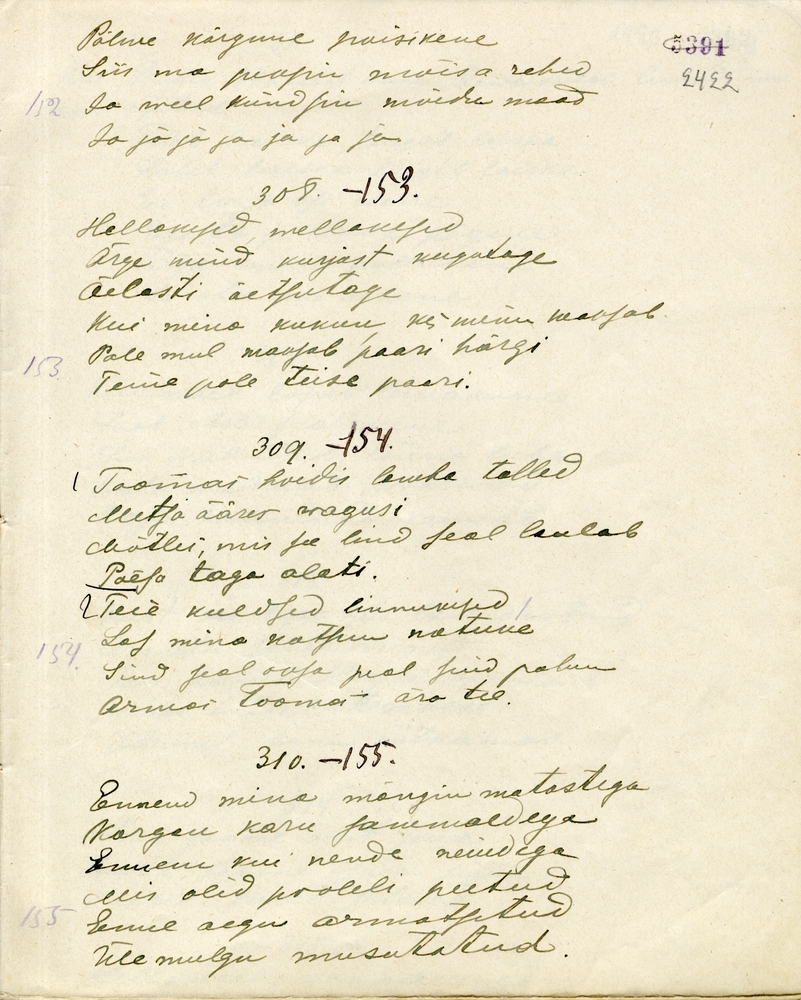 5391
2422
Põlwe kõrgune poisikene
Siis ma peksin mõisa rehed
152 Ja weel kündsin mõisa maad
Ja ja ja ja ja ja ja
308. -153.
Hellakesed, wellekesed
Ärge mind kurjast kugutage
Õelasti äetsutage
Kui mina kukun, kes minu maksab
Pole mul maksab paari härgi
153. Teine pole teise paari.
309. -154.
1 Toomas hoidis lamba talled
Metsa ääres wagusi
Mõtles, mis see lind seal laulab
Põesa taga alati.
2 Teie kuldsed linnukesed!
Las mina katsun natuke
154. Sind seal oksa peal sind palun
Armas Toomas ära tee.
310. -155.
Ennend mina mängin matastega
Kargan karu sammaldega
Ennem kui nende neiudega
Mis olid pooleli peetud
155 Enne aegu armatsetud
Üle mulgu musutatud.